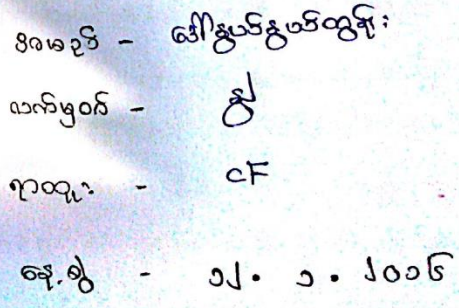 အမည် - ဒေါ်နွယ်နွယ်ထွန်း
လက်မှတ် - နွယ်
ရာထူး - CF
နေ့စွဲ - ၁၂. ၁. ၂၀၁၆